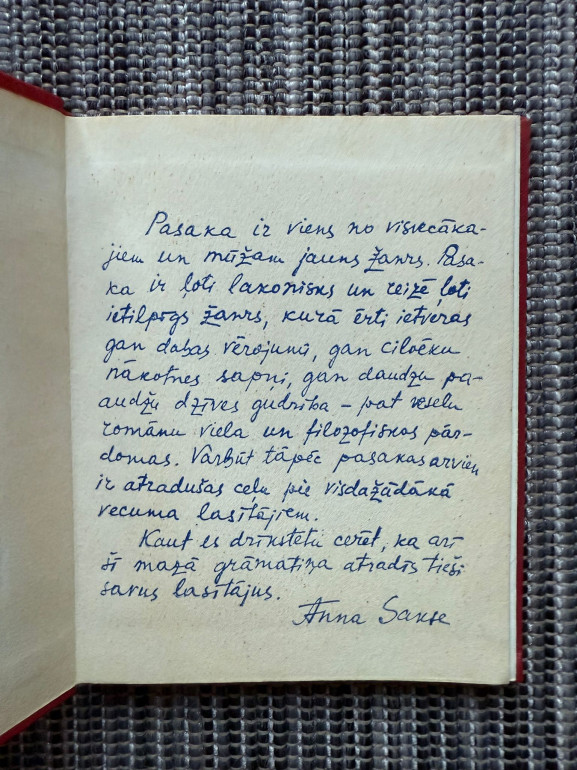 Pasaka ir viens no visvecāka-
jiem un mūžam jauns žanrs. Pasa-
ka ir ļoti lakonisks un reizē ļoti
ietilpīgs žanrs, kurā ērti ietveras
gan dabas vērojumi, gan cilvēku
nākotnes sapņi, gan daudzu pa-
audžu dzīves gudrība – pat veselu
romānu viela un filozofiskas pār-
domas. Varbūt tāpēc pasakas arvien
ir atradušas ceļu pie visdažādākā
vecuma lasītājiem.
Kaut es drīkstētu cerēt, ka arī
šī mazā grāmatiņa atradīs tieši
savus lasītājus.
Anna Sakse